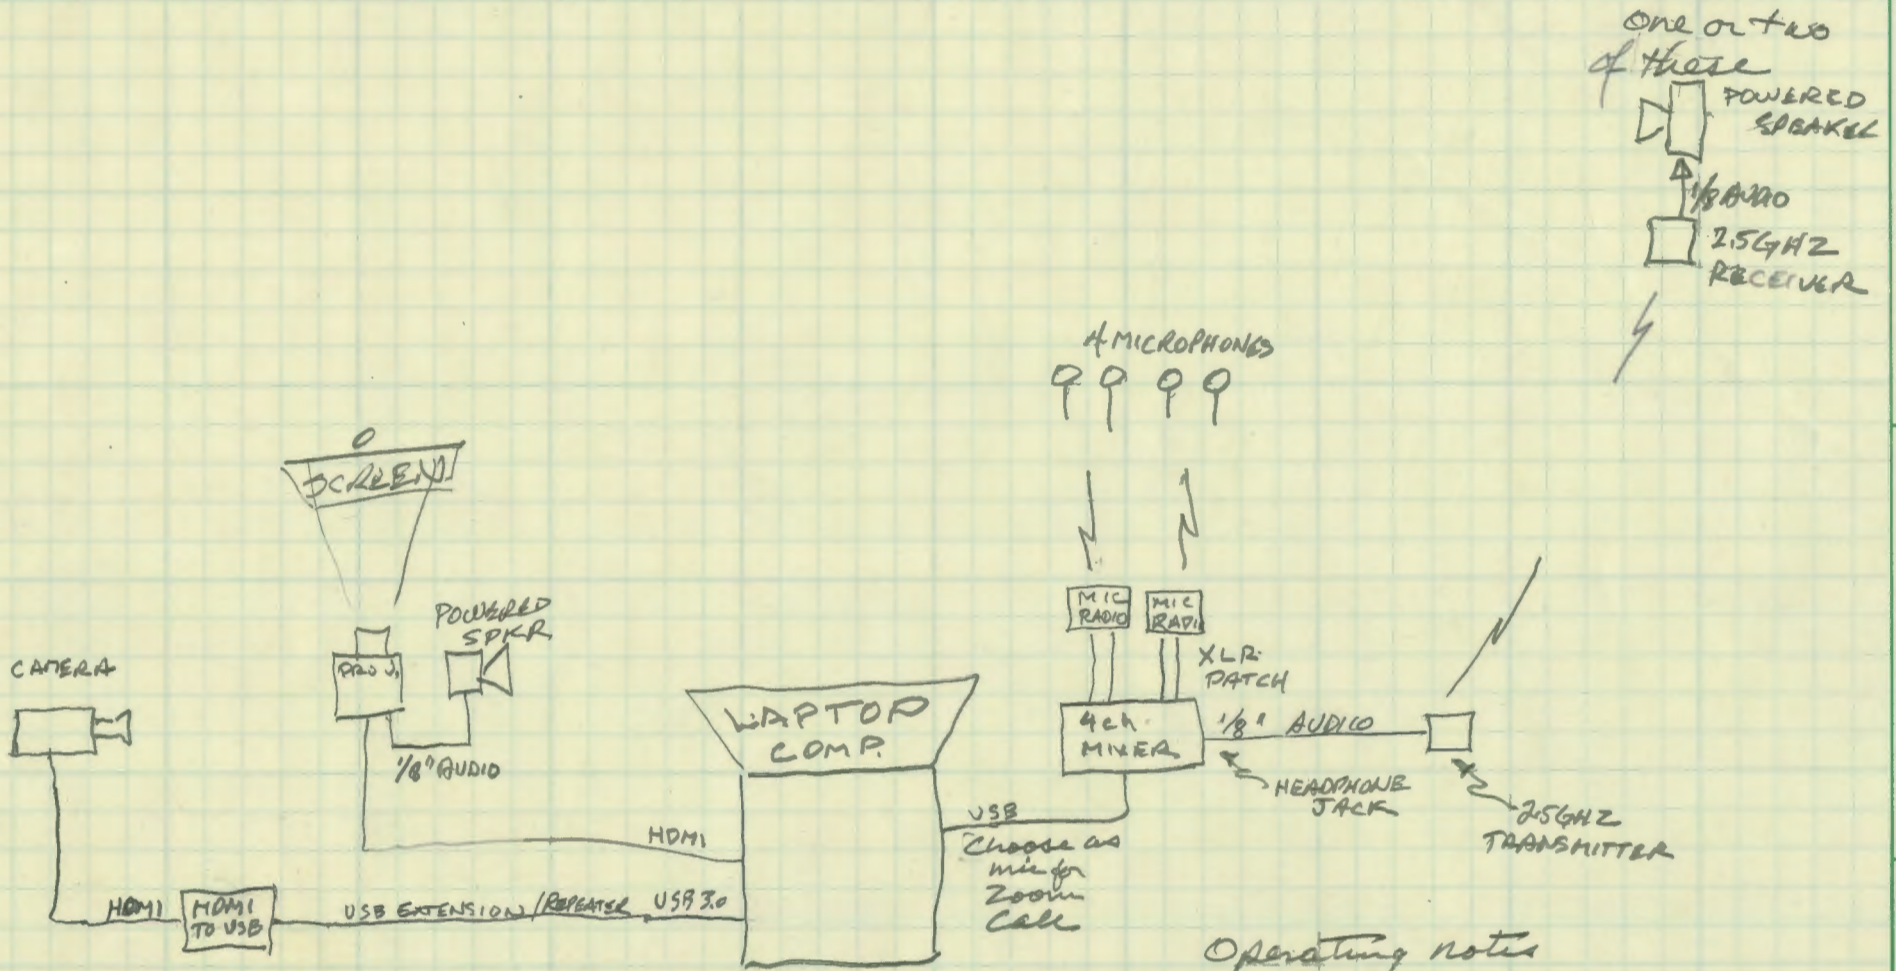 One or two
of these
POWERED
SPEAKER
1/8 AUDIO
2.5GHZ
RECEIVER
4 MICROPHONES
SCREEN
POWERED
SPKR
CAMERA
PROJ.
1/8" AUDIO
MIC
RADIO
MIC
RADI
XLR
PATCH
LAPTOP
COMP.
4ch
MIXER
1/8" AUDIO
HEADPHONE
JACK
2.5GHZ
TRANSMITTER
USB
Choose as
mic for
Zoom
Call
HDMI
HDMI
HDMI
TO USB
USB EXTENSION/REPEATER USB 3.0
Operating notes